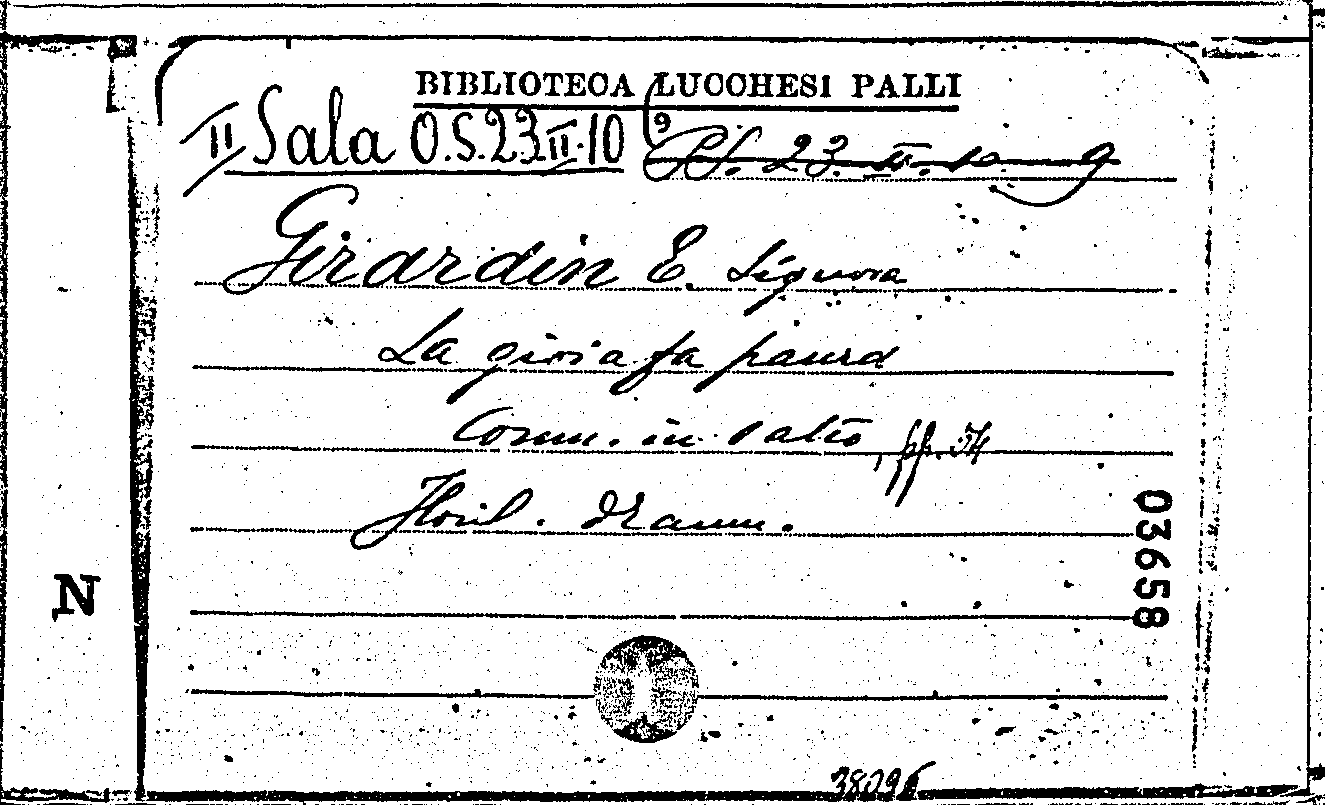 BIBLIOTECA LUCCHESI PALLI
II Sala O.S.23 II·10 (9
23. II. 10 9
Girardin E. Signora
La gioia fa paura
Comm. in 1 atto, pp. 54
Floril. dramm.
03658
N
38096